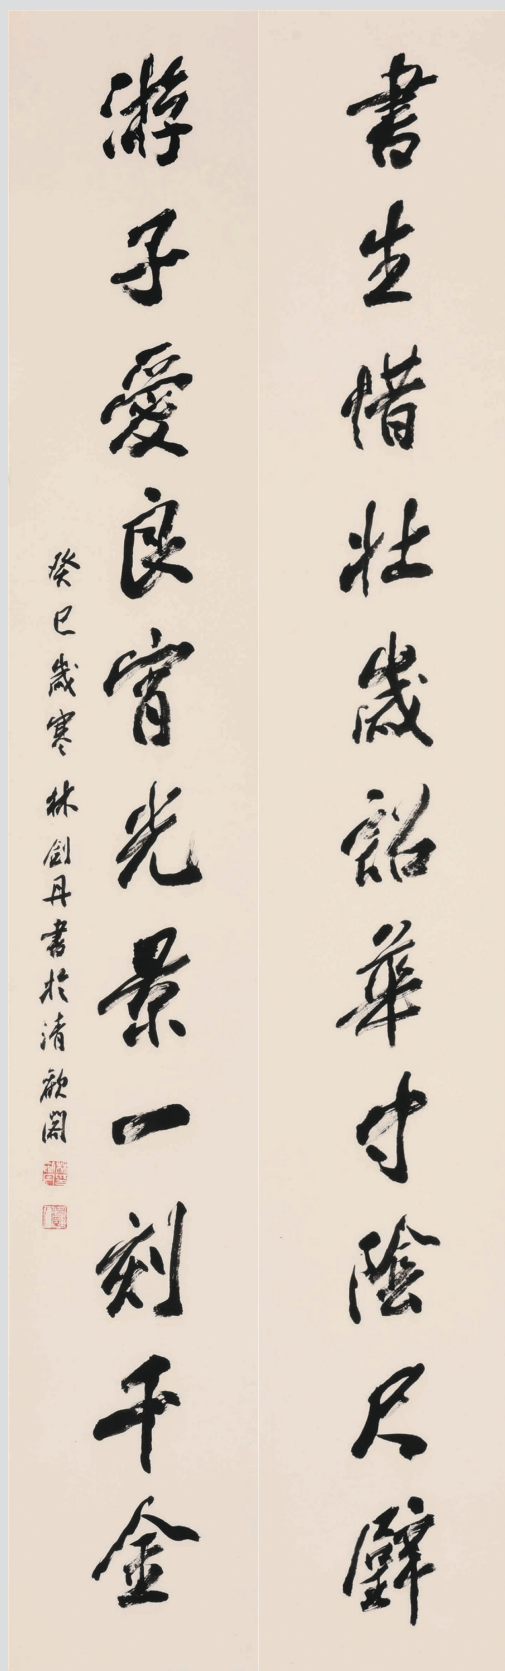 書生惜壯歲韶華寸陰尺璧
游子愛良宵光景一刻千金
癸巳歲寒林劍丹書於清歡閣